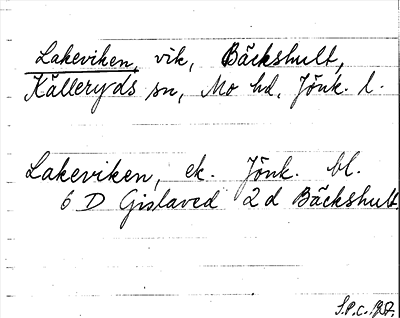 Lakeviken, vik, Bäckshult,
Källeryds sn, Mo hd, Jönk. l.
Lakeviken, ek. Jönk. bl.
6 D Gislaved 2d Bäckshult.
S.P.C.